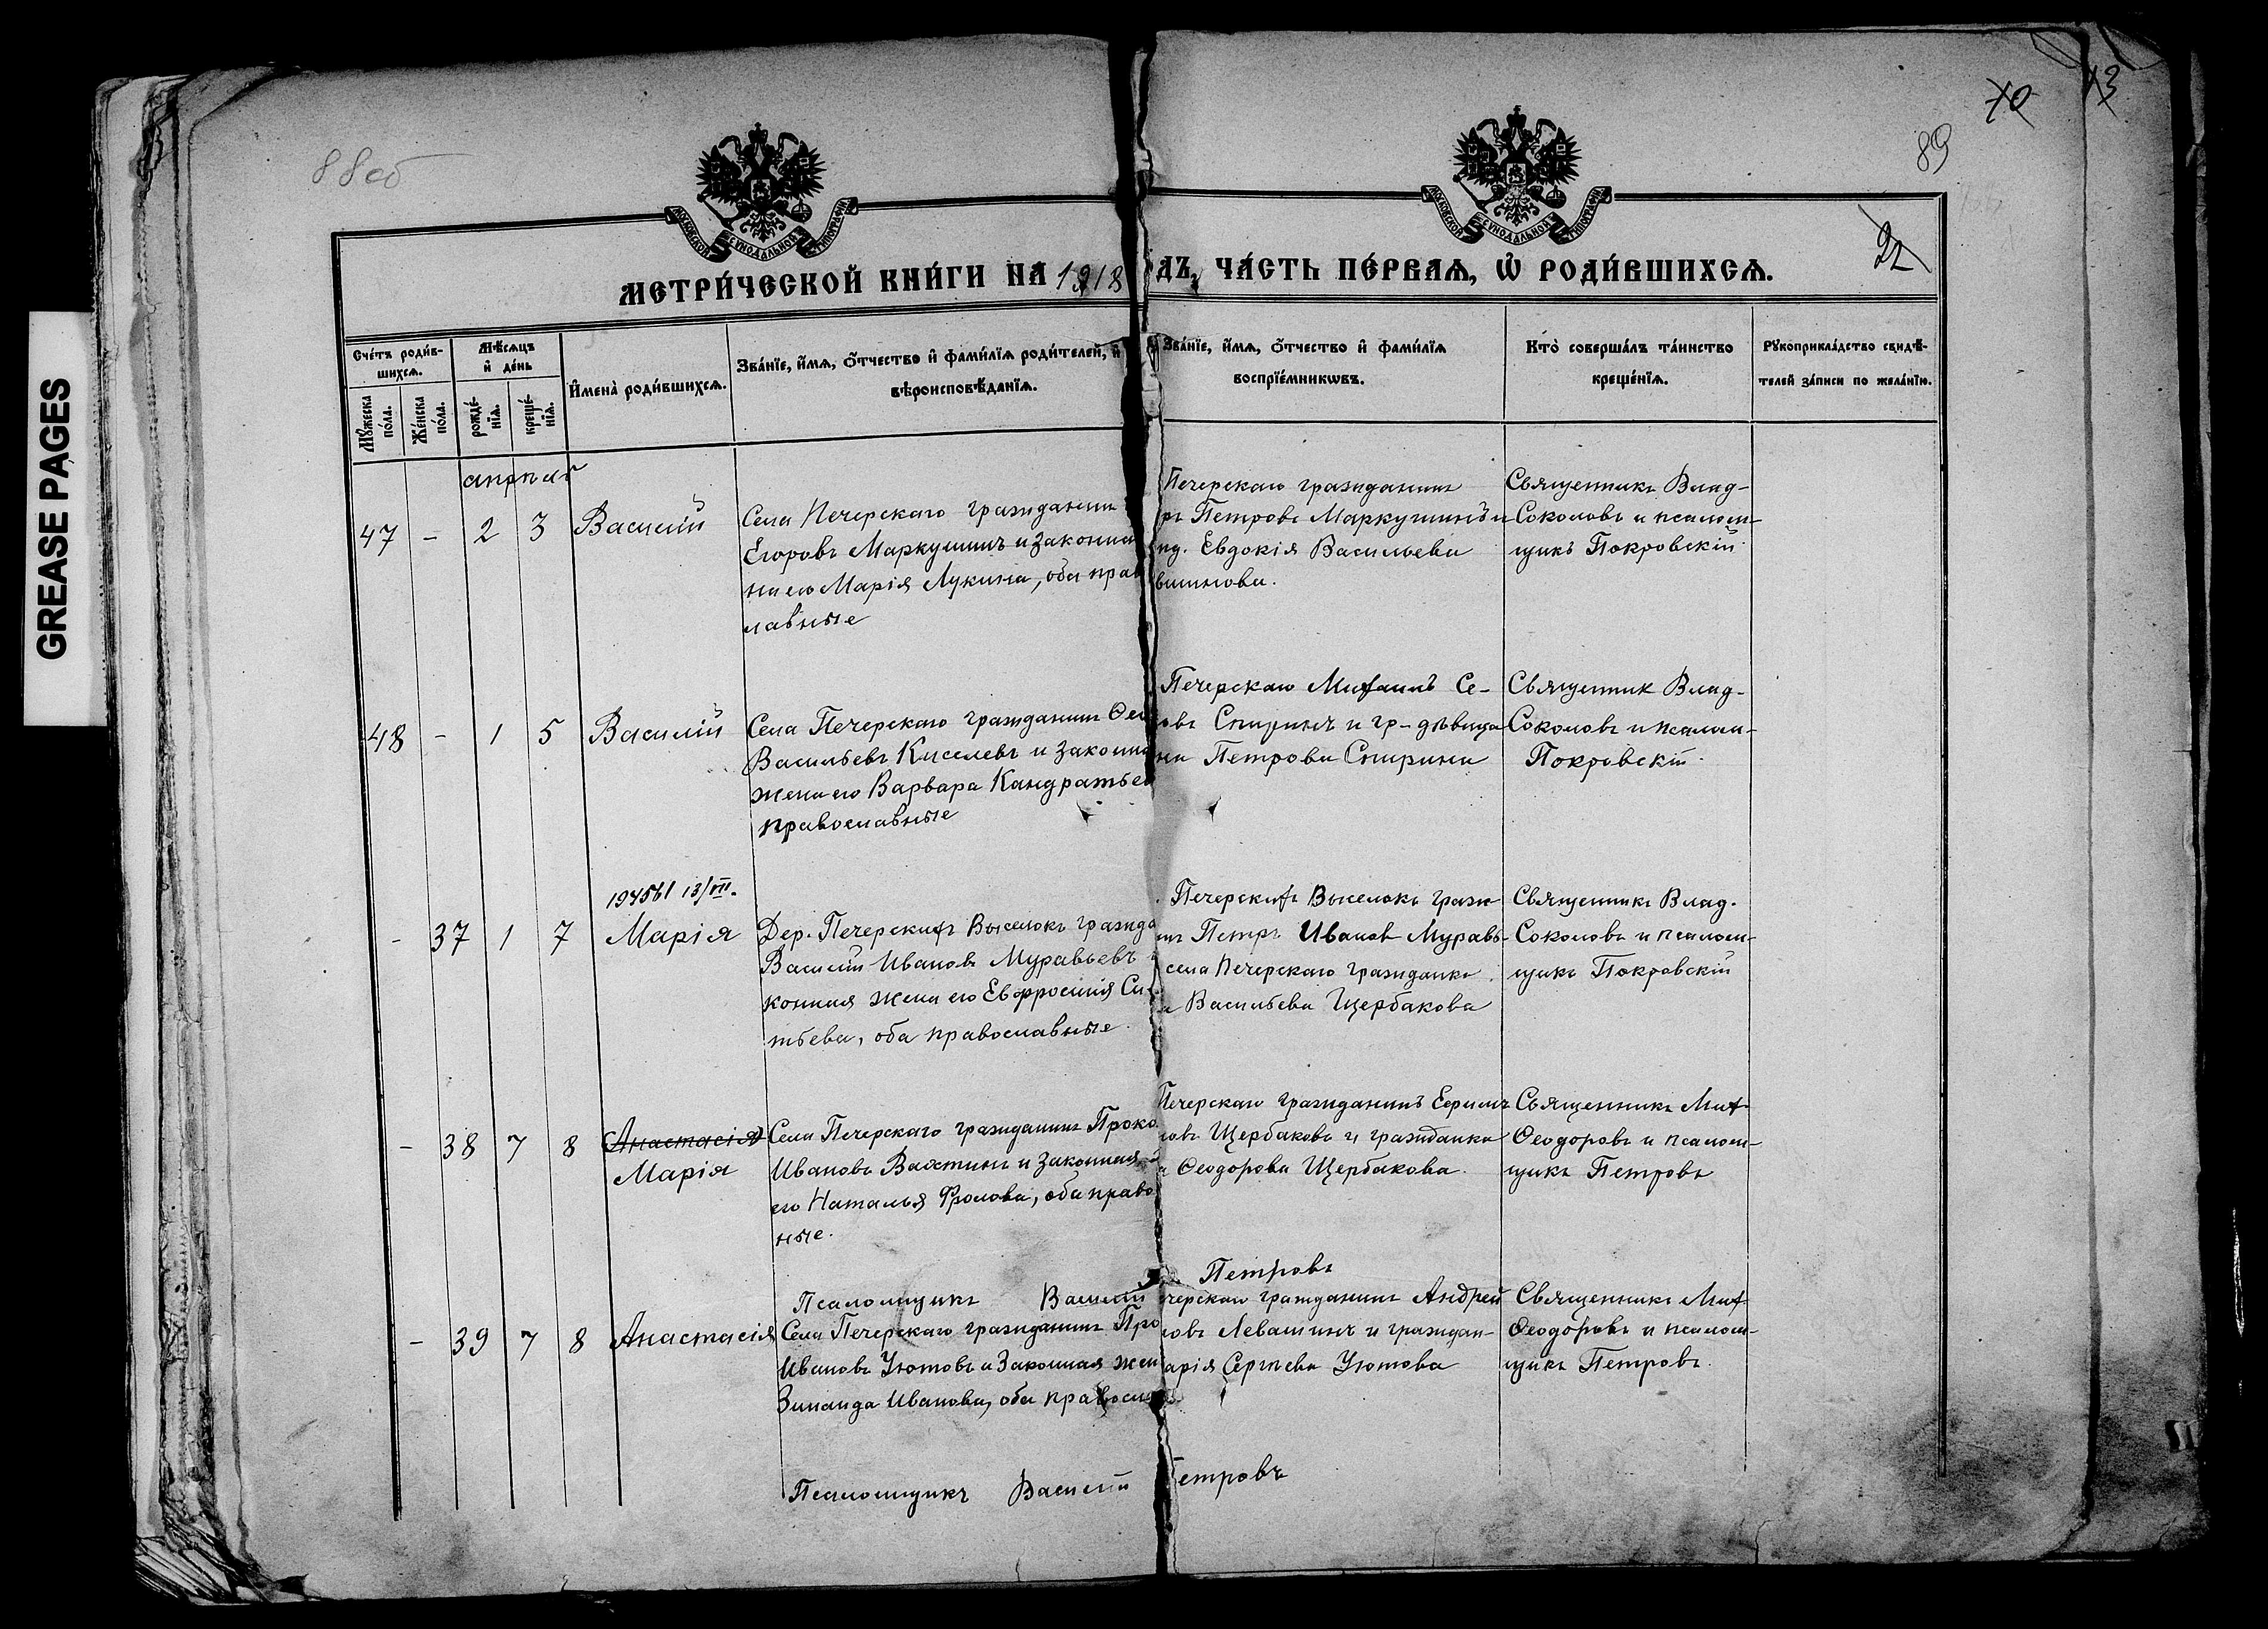 GREASE PAGES
88об
70
13
89
92
МОСКОВСКОЙ СѴНОДАЛЬНОЙ ТИПОГРАФІИ
МОСКОВСКОЙ СѴНОДАЛЬНОЙ ТИПОГРАФІИ
МЕТРИ́ЧЕСКОЙ КНИ́ГИ НА 1918
ДЪ, ЧА́СТЬ ПЕ́РВАѦ, Ѡ҆ РОДИ́ВШИХСѦ.
Сче́тъ роди́в-
шихсѧ.
Мꙋ́жеска по́ла.
Же́нска по́ла.
Мѣ́сѧцъ и҆ де́нь
рожде́-нїѧ.
креще́-нїѧ.
И҆мена̀ роди́вшихсѧ.
Зва́нїе, и҆́мѧ, ѻ҆́тчество и҆ фами́лїѧ роди́телей, и҆
вѣроисповѣ́данїѧ.
Зва́нїе, и҆́мѧ, ѻ҆́тчество и҆ фами́лїѧ
воспрїе́мникѡвъ.
Кто̀ соверша́лъ та́инство
креще́нїѧ.
Рꙋкоприкла́дство свидѣ́-
телей за́писи по жела́нїю.
апрѣль
47 - 2 3 Василій
Села Печерскаго гражданин
Егоровъ Маркушинъ и законна
на его Марія Лукина, оба прав
лавные
Печерскаго гражданинъ
ръ Петровъ Маркушинъ и
нд. Евдокія Васильева
вшинова.
Священникъ Влад-
Соколовъ и псалом-
щикъ Покровскій
48 - 1 5 Василій
Села Печерскаго гражданинъ Ѳео
Васильевъ Киселевъ и законна
жена его Варвара Кандратьев
православные
Печерскаго Михаилъ Се-
овъ Спиринъ и гр-дѣвица
на Петрова Спирина
Священник Влад-
Соколовъ и псалом-
Покровскій
13/VII.
- 37 1 7 Марія
Дер. Печерскихъ Выселокъ гражда
Василій Ивановъ Муравьевъ
конная жена его Евфросинія Си
тьева, оба православные.
Печерскихъ Выселокъ граж-
нъ Петръ Иванов Муравь-
села Печерскаго гражданка
а Васильева Щербакова
Священникъ Влад.
Соколовъ и псалом-
щикъ Покровскій
- 38 7 8 Анастасія
Марія
Села Печерскаго гражданинъ Проко
Ивановъ Вахтинъ и законная
его Наталья Фролова, оба право
ные.
Печерскаго гражданинъ Ефимъ
овъ Щербаковъ и гражданка
а Ѳеодорова Щербакова.
Священникъ Мих
Ѳеодоровъ и псалом-
щикъ Петровъ
Псаломщикъ Василій
Петровъ
- 39 7 8 Анастасія
Села Печерскаго гражданинъ Про
Ивановъ Уютовъ и Законная жен
Зинаида Иванова, оба правосла
черскаго гражданинъ Андрей
овъ Левашинъ и граждан-
арія Сергѣева Уютова
Священникъ Мих
Ѳеодоровъ и псалом-
щикъ Петровъ.
Псаломщикъ Василій
Петровъ